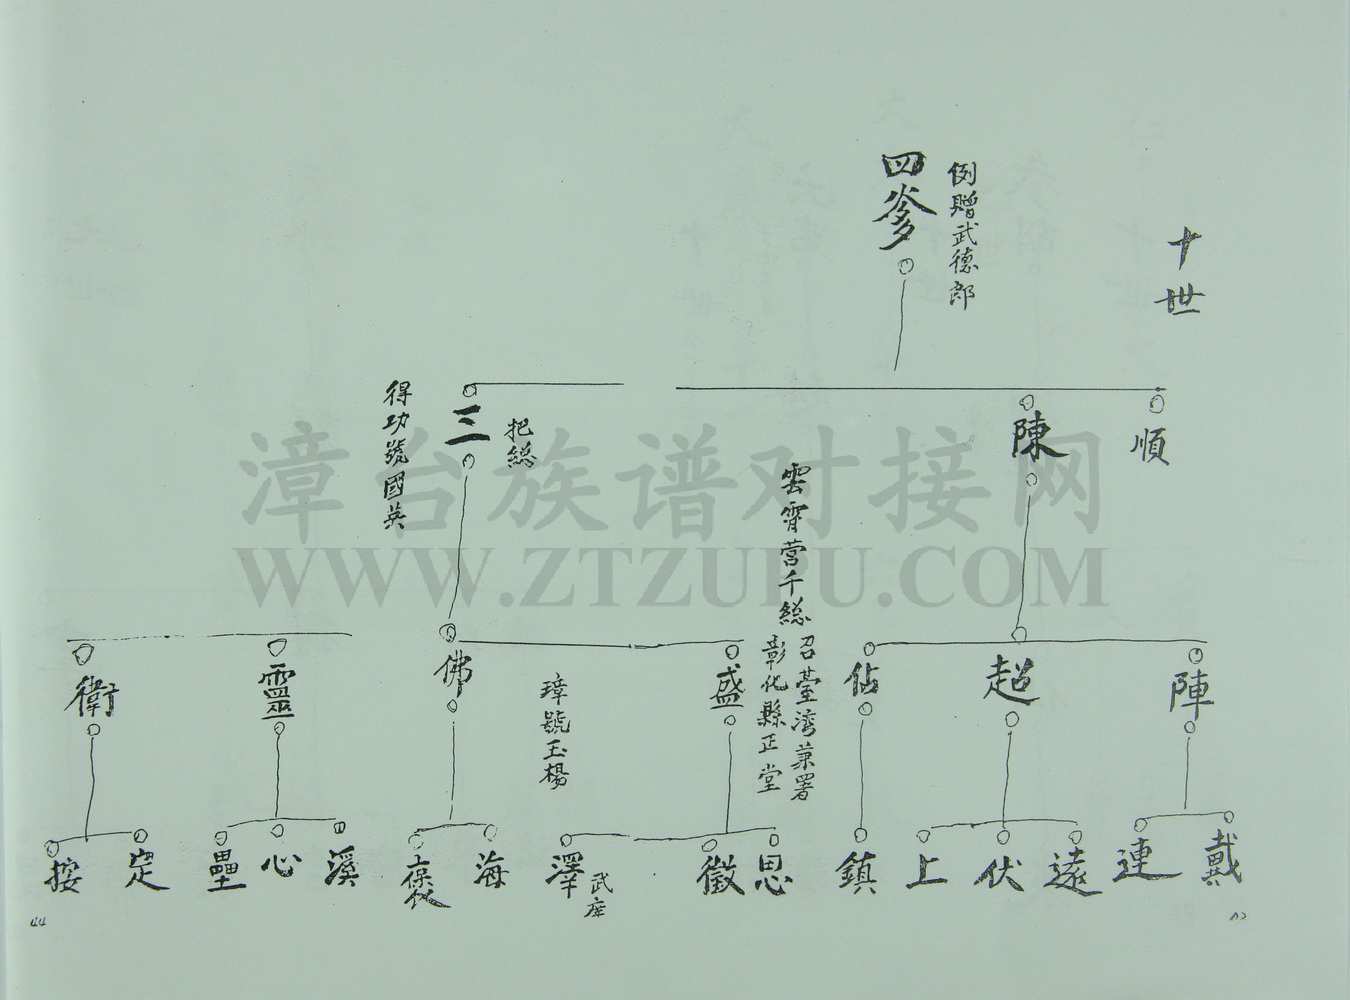 十世
例贈武德郎
四爹
順
陳
把總
三
得功號國英
陣
超
佑
雲霄營千總
召臺湾兼署
彰化縣正堂
盛
璋號玉楊
佛
靈
衛
戴
連
遠
伏
上
鎮
思
徵
澤
武庠
海
葆
溪
心
壘
定
按
漳台族谱对接网
WWW.ZTZUPU.COM